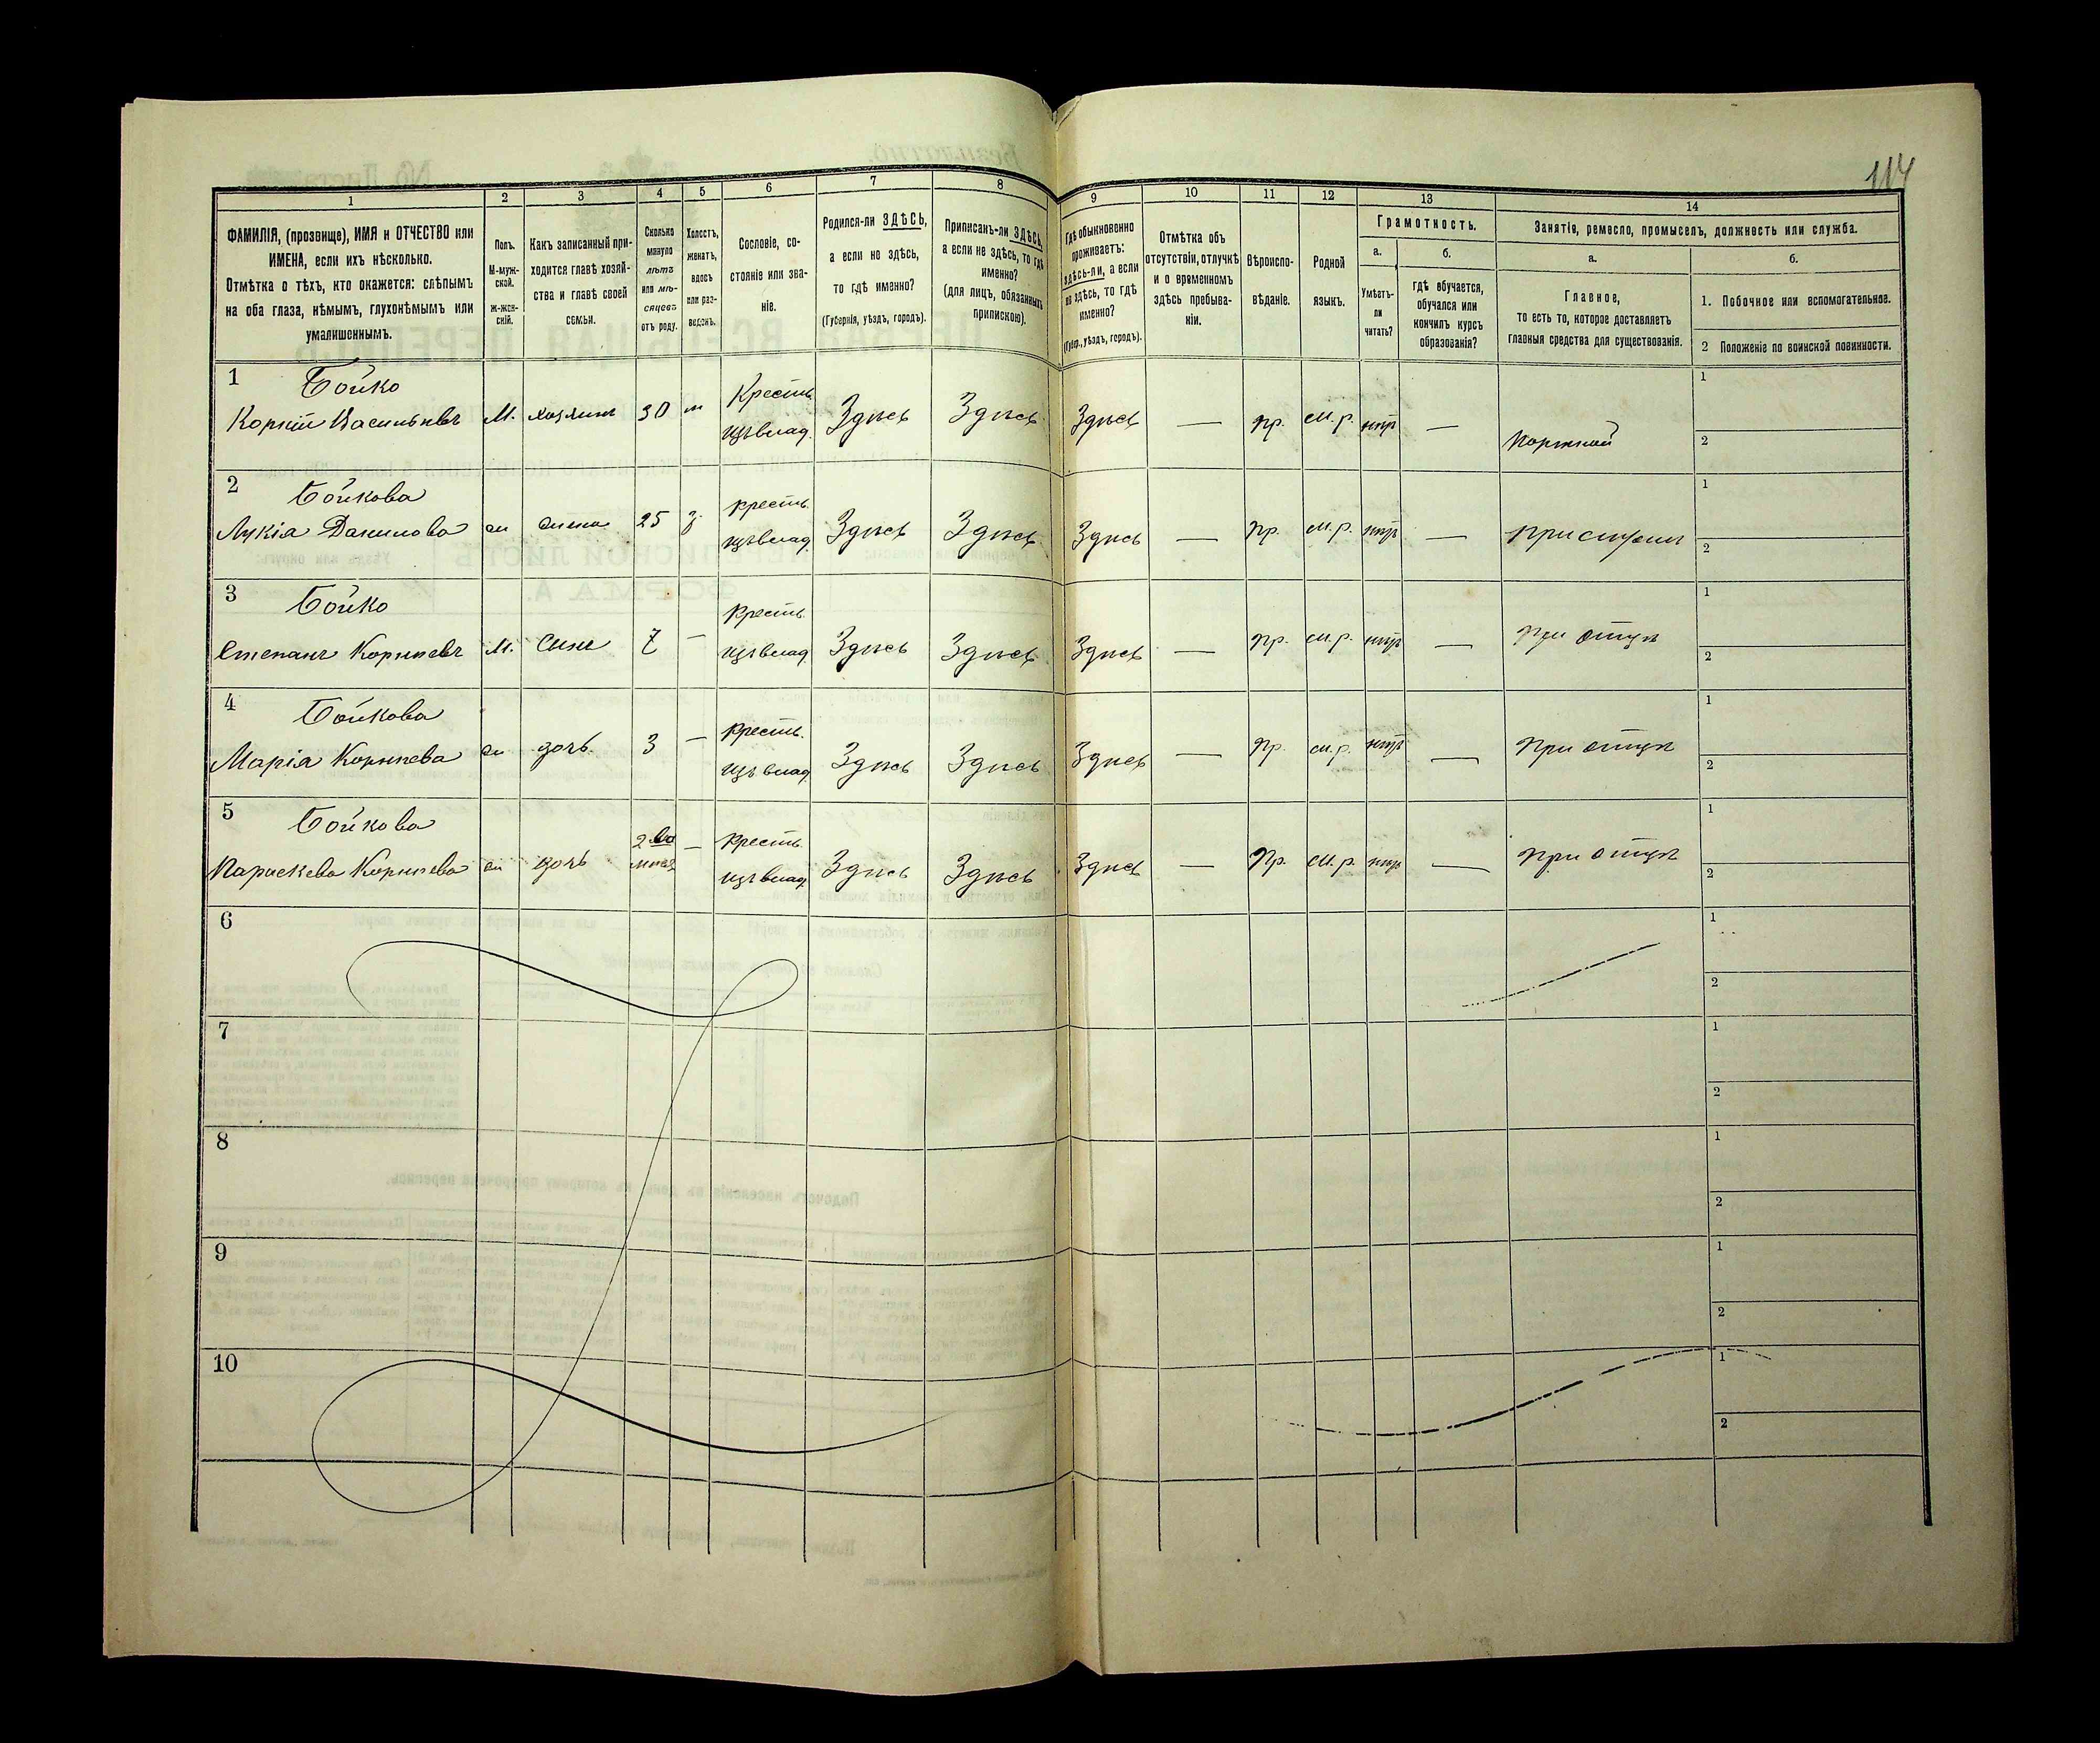 114
1
2
3
4
5
6
7
8
9
10
11
12
13
14
ФАМИЛІЯ, (прозвище), ИМЯ и ОТЧЕСТВО или
ИМЕНА, если ихъ нѣсколько.
Отмѣтка о тѣхъ, кто окажется: слѣпымъ
на оба глаза, нѣмымъ, глухонѣмымъ или
умалишеннымъ.
Полъ.
М-муж-
ской.
Ж-жен-
скій.
Какъ записанный при-
ходится главѣ хозяй-
ства и главѣ своей
семьи.
Сколько
минуло
лѣтъ
или мѣ-
сяцевъ
отъ роду.
Холостъ,
женатъ,
вдовъ
или раз-
веденъ.
Сословіе, со-
стояніе или зва-
ніе.
Родился-ли ЗДѢСЬ,
а если не здѣсь,
то гдѣ именно?
(Губернія, уѣздъ, городъ).
Приписанъ-ли ЗДѢСЬ,
а если не здѣсь, то гдѣ
именно?
(для лицъ, обязанныхъ
припискою).
Гдѣ обыкновенно
проживаетъ:
здѣсь-ли, а если
не здѣсь, то гдѣ
именно?
(Губер., уѣздъ, городъ).
Отмѣтка объ
отсутствіи, отлучкѣ
и о временномъ
здѣсь пребыва-
ніи.
Вѣроиспо-
вѣданіе.
Родной
языкъ.
Грамотность.
а.
Умѣетъ-
ли
читать?
б.
гдѣ обучается,
обучался или
кончилъ курсъ
образованія?
Занятіе, ремесло, промыселъ, должность или служба.
а.
Главное,
то есть то, которое доставляетъ
главныя средства для существованія.
б.
1. Побочное или вспомогательное.
2 Положеніе по воинской повинности.
1
Бойко
Корній Васильевъ
М. хозяинъ 30
Крестъ.
Здѣсь Здѣсь Здѣсь — пр. м.р. нѣтъ —
Портной
1
2
2
Бойкова
Лукія Данилова
жена 25 з.
крестъ.
Здѣсь Здѣсь Здѣсь — пр. м.р. нѣтъ —
при мужѣ
1
2
3
Бойко
Степанъ Корнѣевъ
М. сынъ 7 —
крестъ.
Здѣсь Здѣсь Здѣсь — пр. м.р. нѣтъ —
при отцѣ
1
2
4
Бойкова
Марія Корнѣева
дочь. 3 —
крестъ.
Здѣсь Здѣсь Здѣсь — пр. м.р. нѣтъ —
при отцѣ
1
2
5
Бойкова
Параскева Корнѣева
дочь —
крестъ.
Здѣсь Здѣсь Здѣсь — пр. м.р. нѣтъ —
при отцѣ
1
2
6
1
2
7
1
2
8
1
2
9
1
2
10
1
2